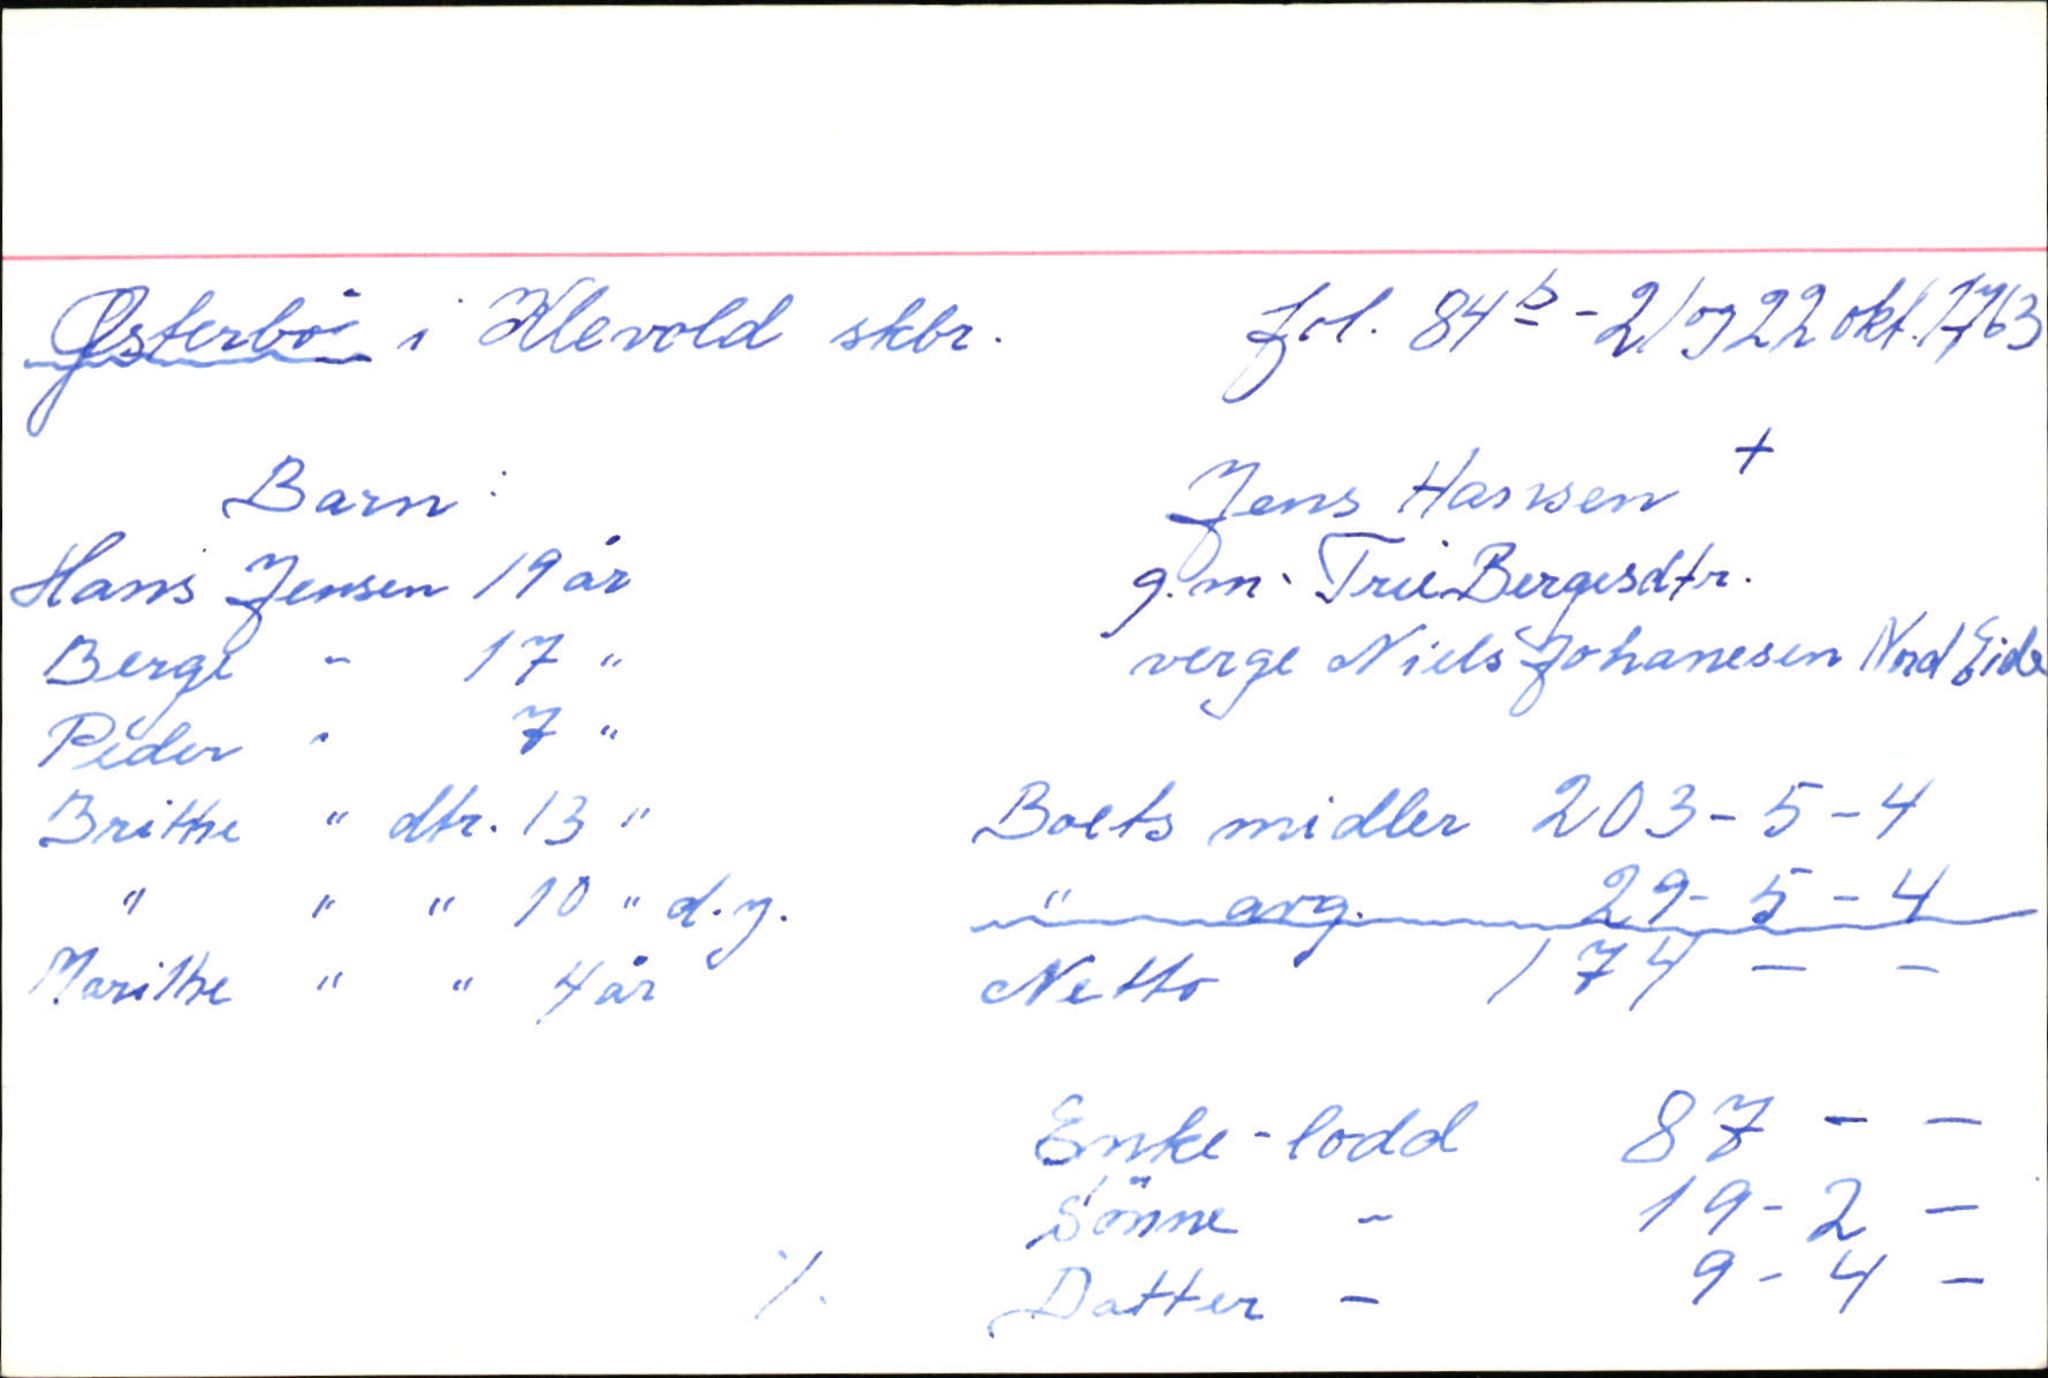 Østerbø i Klevold skbr. fol. 84 b - 21 og 22 okt. 1763
Barn:
Hans Jensen 19 år
Berge - 17 "
Peder " 7 "
Brithe " dtr. 13 "
" " " 10 " d.y.
Marithe " " 4 år
Jens Hansen +
g.m. Trii Bergesdtr.
verge Niels Johanesen Nord Eide
Boets midler 203-5-4
" avg. 29-5-4
Netto 174 - -
Enke-lodd 87 - -
Sønne - 19-2 -
Datter - 9-4 -
%